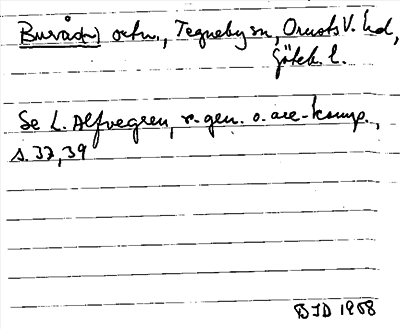 Buråst) ortn., Tegneby sn, Orusts V. hd,
Göteb. l.
Se L. Alfvegren, r-gen. o. are-komp.,
s. 37, 39
BJD 1968